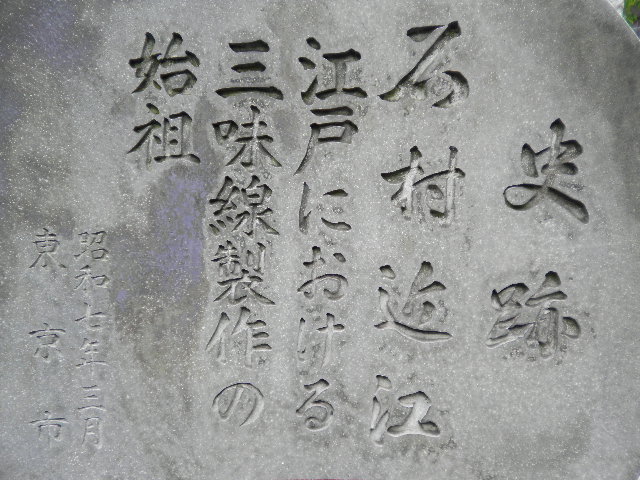 史跡
石村近江
江戸における
三味線製作の
始祖
昭和七年三月
東京市